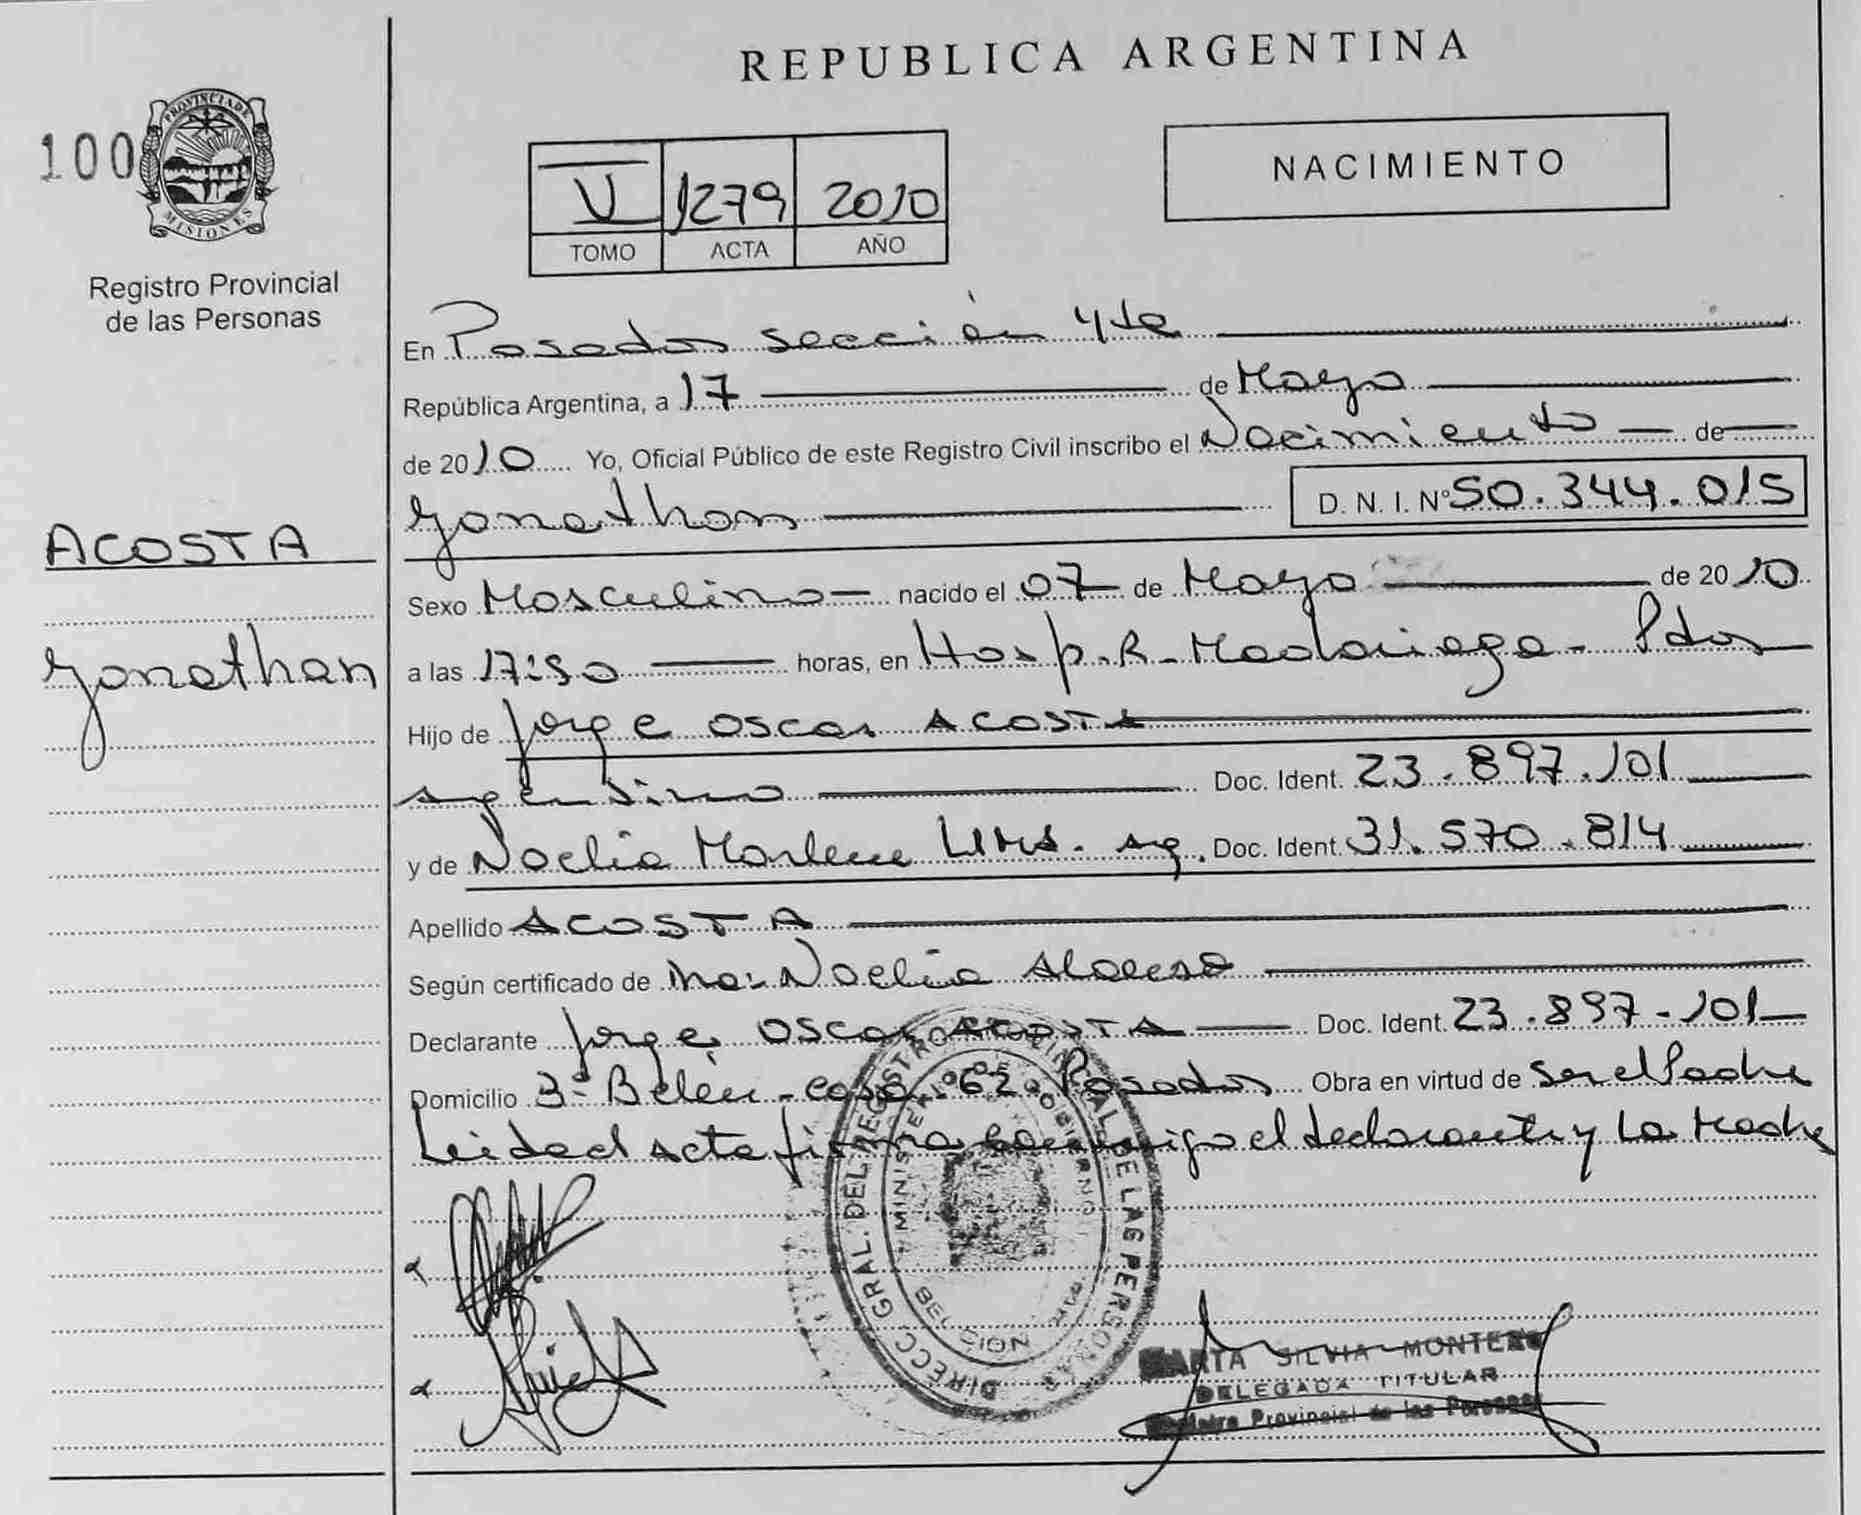 REPUBLICA ARGENTINA
100
PROVINCIA DE
MISIONES
Registro Provincial
de las Personas
V 1279 2010
TOMO ACTA AÑO
NACIMIENTO
ACOSTA
Jonathan
En Posadas sección 4ta
República Argentina, a 17 de Mayo
de 2010 Yo, Oficial Público de este Registro Civil inscribo el Nacimiento de
Jonathan D. N. I. Nº 50.344.015
Sexo Masculino nacido el 07 de Mayo de 2010
a las horas, en Hosp. R. Madariaga - Pdas
Hijo de Jorge Oscar ACOSTA
argentino Doc. Ident. 23.897.101
y de Noelia Marlene arg. Doc. Ident. 31.570.814
Apellido ACOSTA
Según certificado de Noelia
Declarante Jorge Oscar ACOSTA Doc. Ident. 23.897.101
Domicilio Belén - casa 62 - Posadas Obra en virtud de Ser el Padre
Leida el acta firma conmigo el declarante y La Madre
DIRECC. GRAL. DEL REGISTRO PROVINCIAL DE LAS PERSONAS
MINISTERIO DE GOBIERNO
MARTA SILVIA MONTERO
DELEGADA TITULAR
Registro Provincial de las Personas